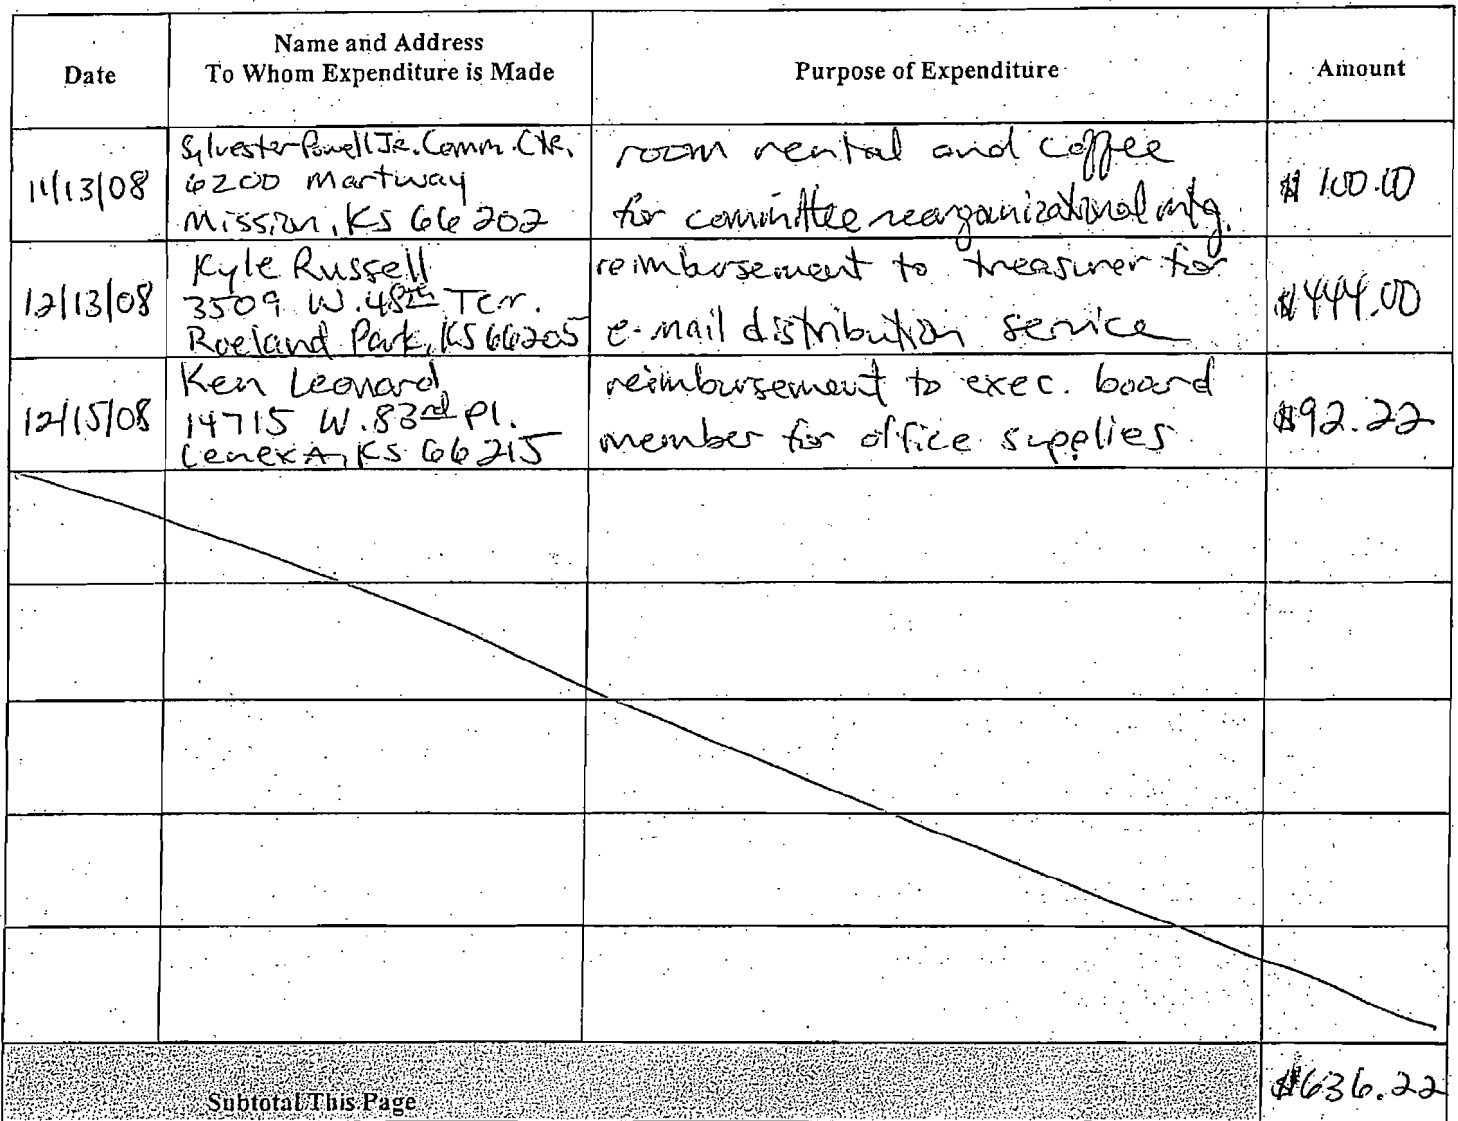 Date
Name and Address
To Whom Expenditure is Made
Purpose of Expenditure
Amount
11/13/08
Sylvester Powell Jr. Comm. Ctr.
6200 Martway
Mission, KS 66202
room rental and coffee
for committee reorganizational mtg.
$100.00
12/13/08
Kyle Russell
3509 W. 48th Terr.
Roeland Park, KS 66205
reimbursement to treasurer for
e-mail distribution service
$444.00
12/15/08
Ken Leonard
14715 W. 83rd Pl.
Lenexa, KS 66215
reimbursement to exec. board
member for office supplies
$92.22
Subtotal This Page
$636.22